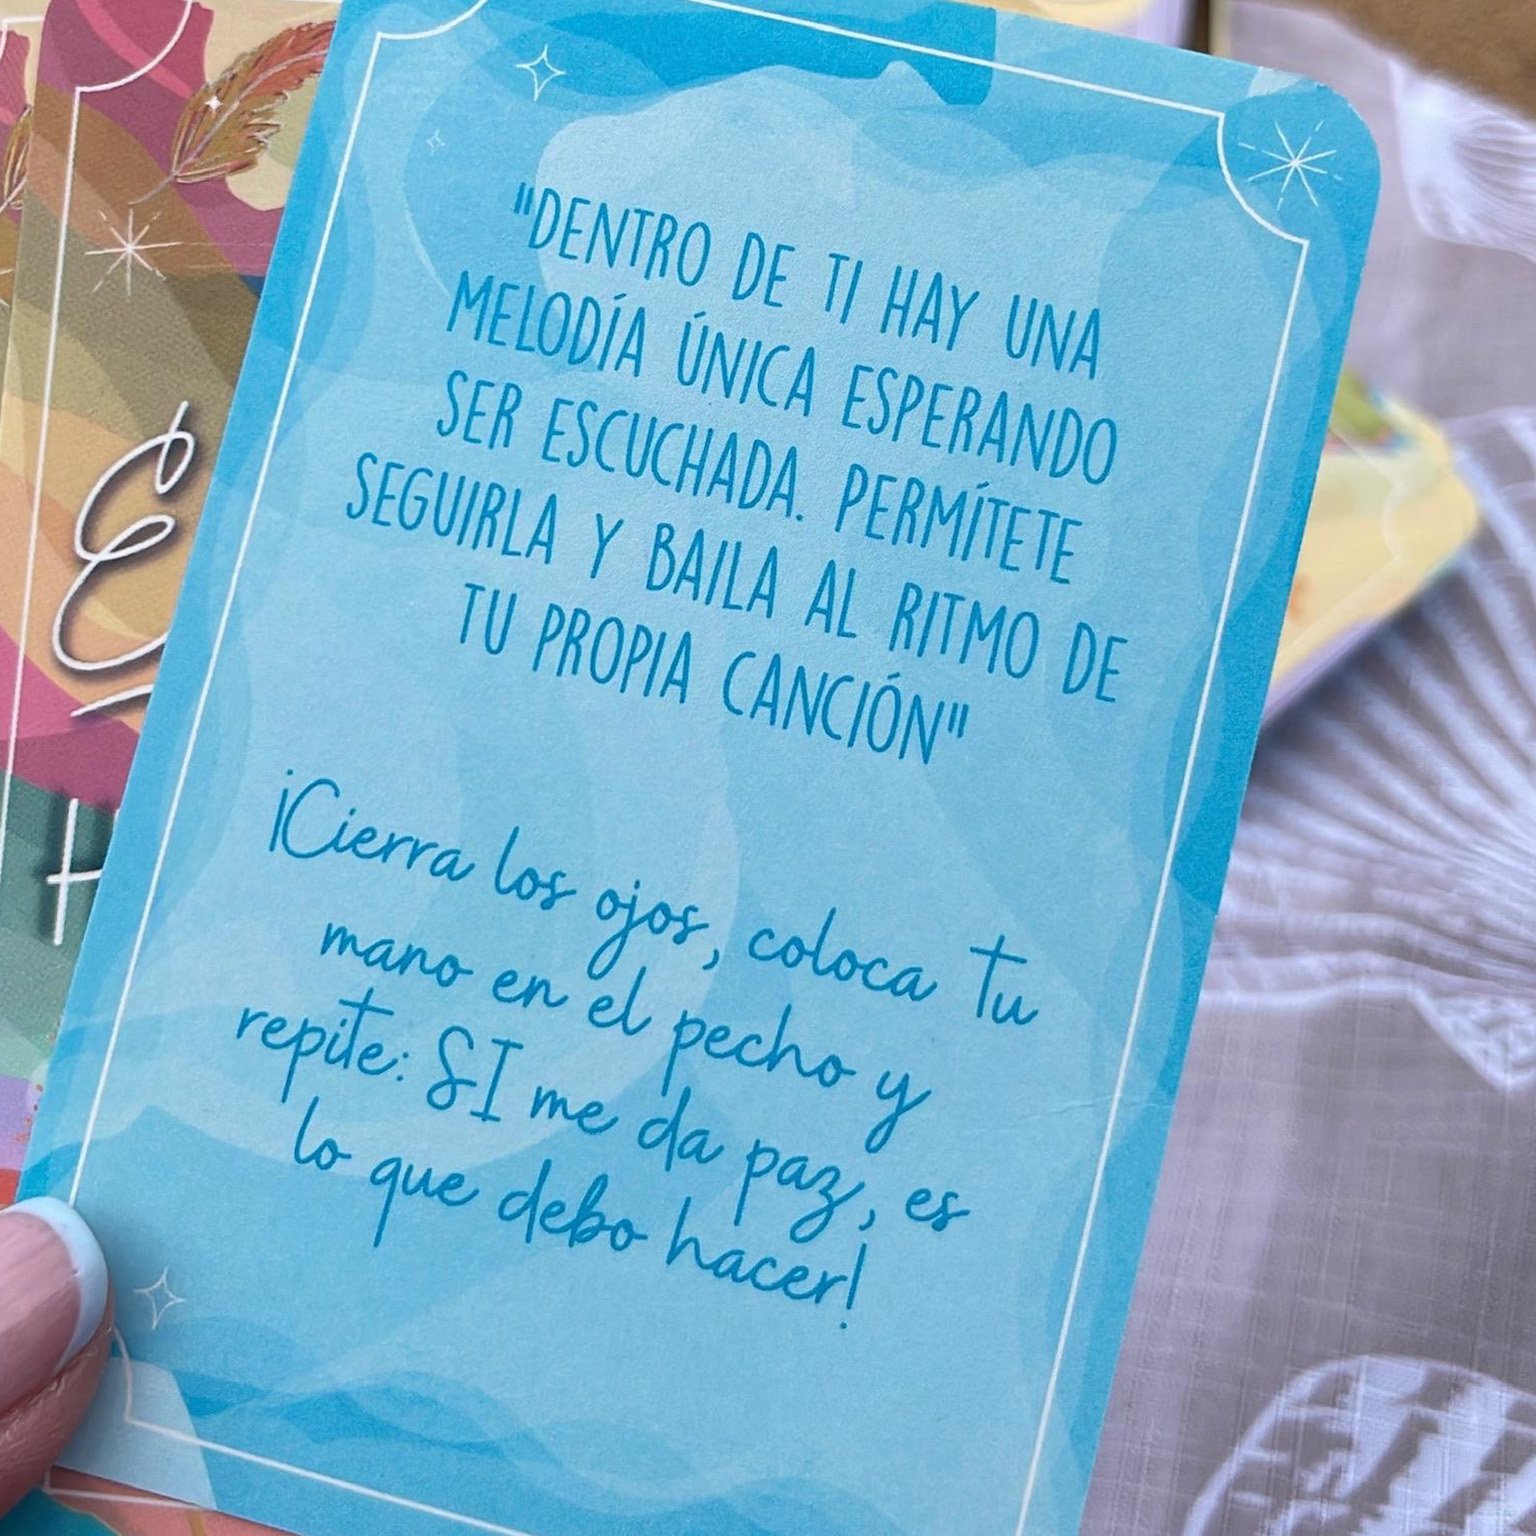 "DENTRO DE TI HAY UNA
MELODÍA ÚNICA ESPERANDO
SER ESCUCHADA. PERMÍTETE
SEGUIRLA Y BAILA AL RITMO DE
TU PROPIA CANCIÓN"
¡Cierra los ojos, coloca tu
mano en el pecho y
repite: SI me da paz, es
lo que debo hacer!